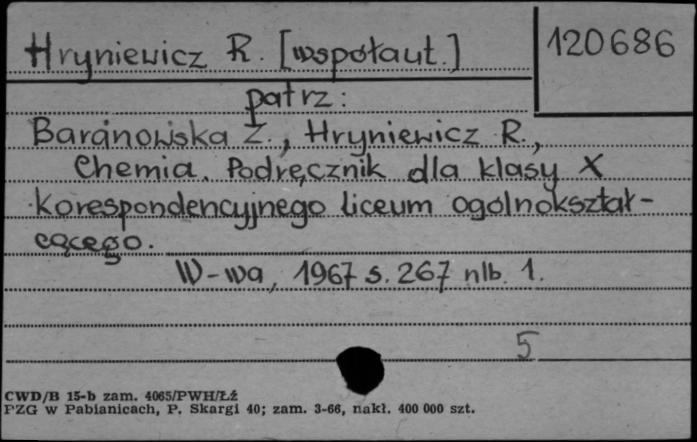 Hryniewicz R. [współaut.]
120686
patrz:
Baranowska Z., Hryniewicz R.,
Chemia. Podręcznik dla klasy X
korespondencyjnego liceum ogólnokształ-
cącego.
W-wa, 1967 s. 267 nlb. 1.
5
CWD/B 15-b zam. 4065/PWH/Łź
PZG w Pabianicach, P. Skargi 40; zam. 3-66, nakł. 400 000 szt.